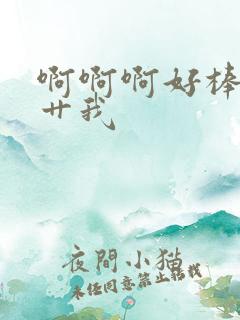 啊啊啊好棒
廾我
夜間小猫
未经同意禁止转载